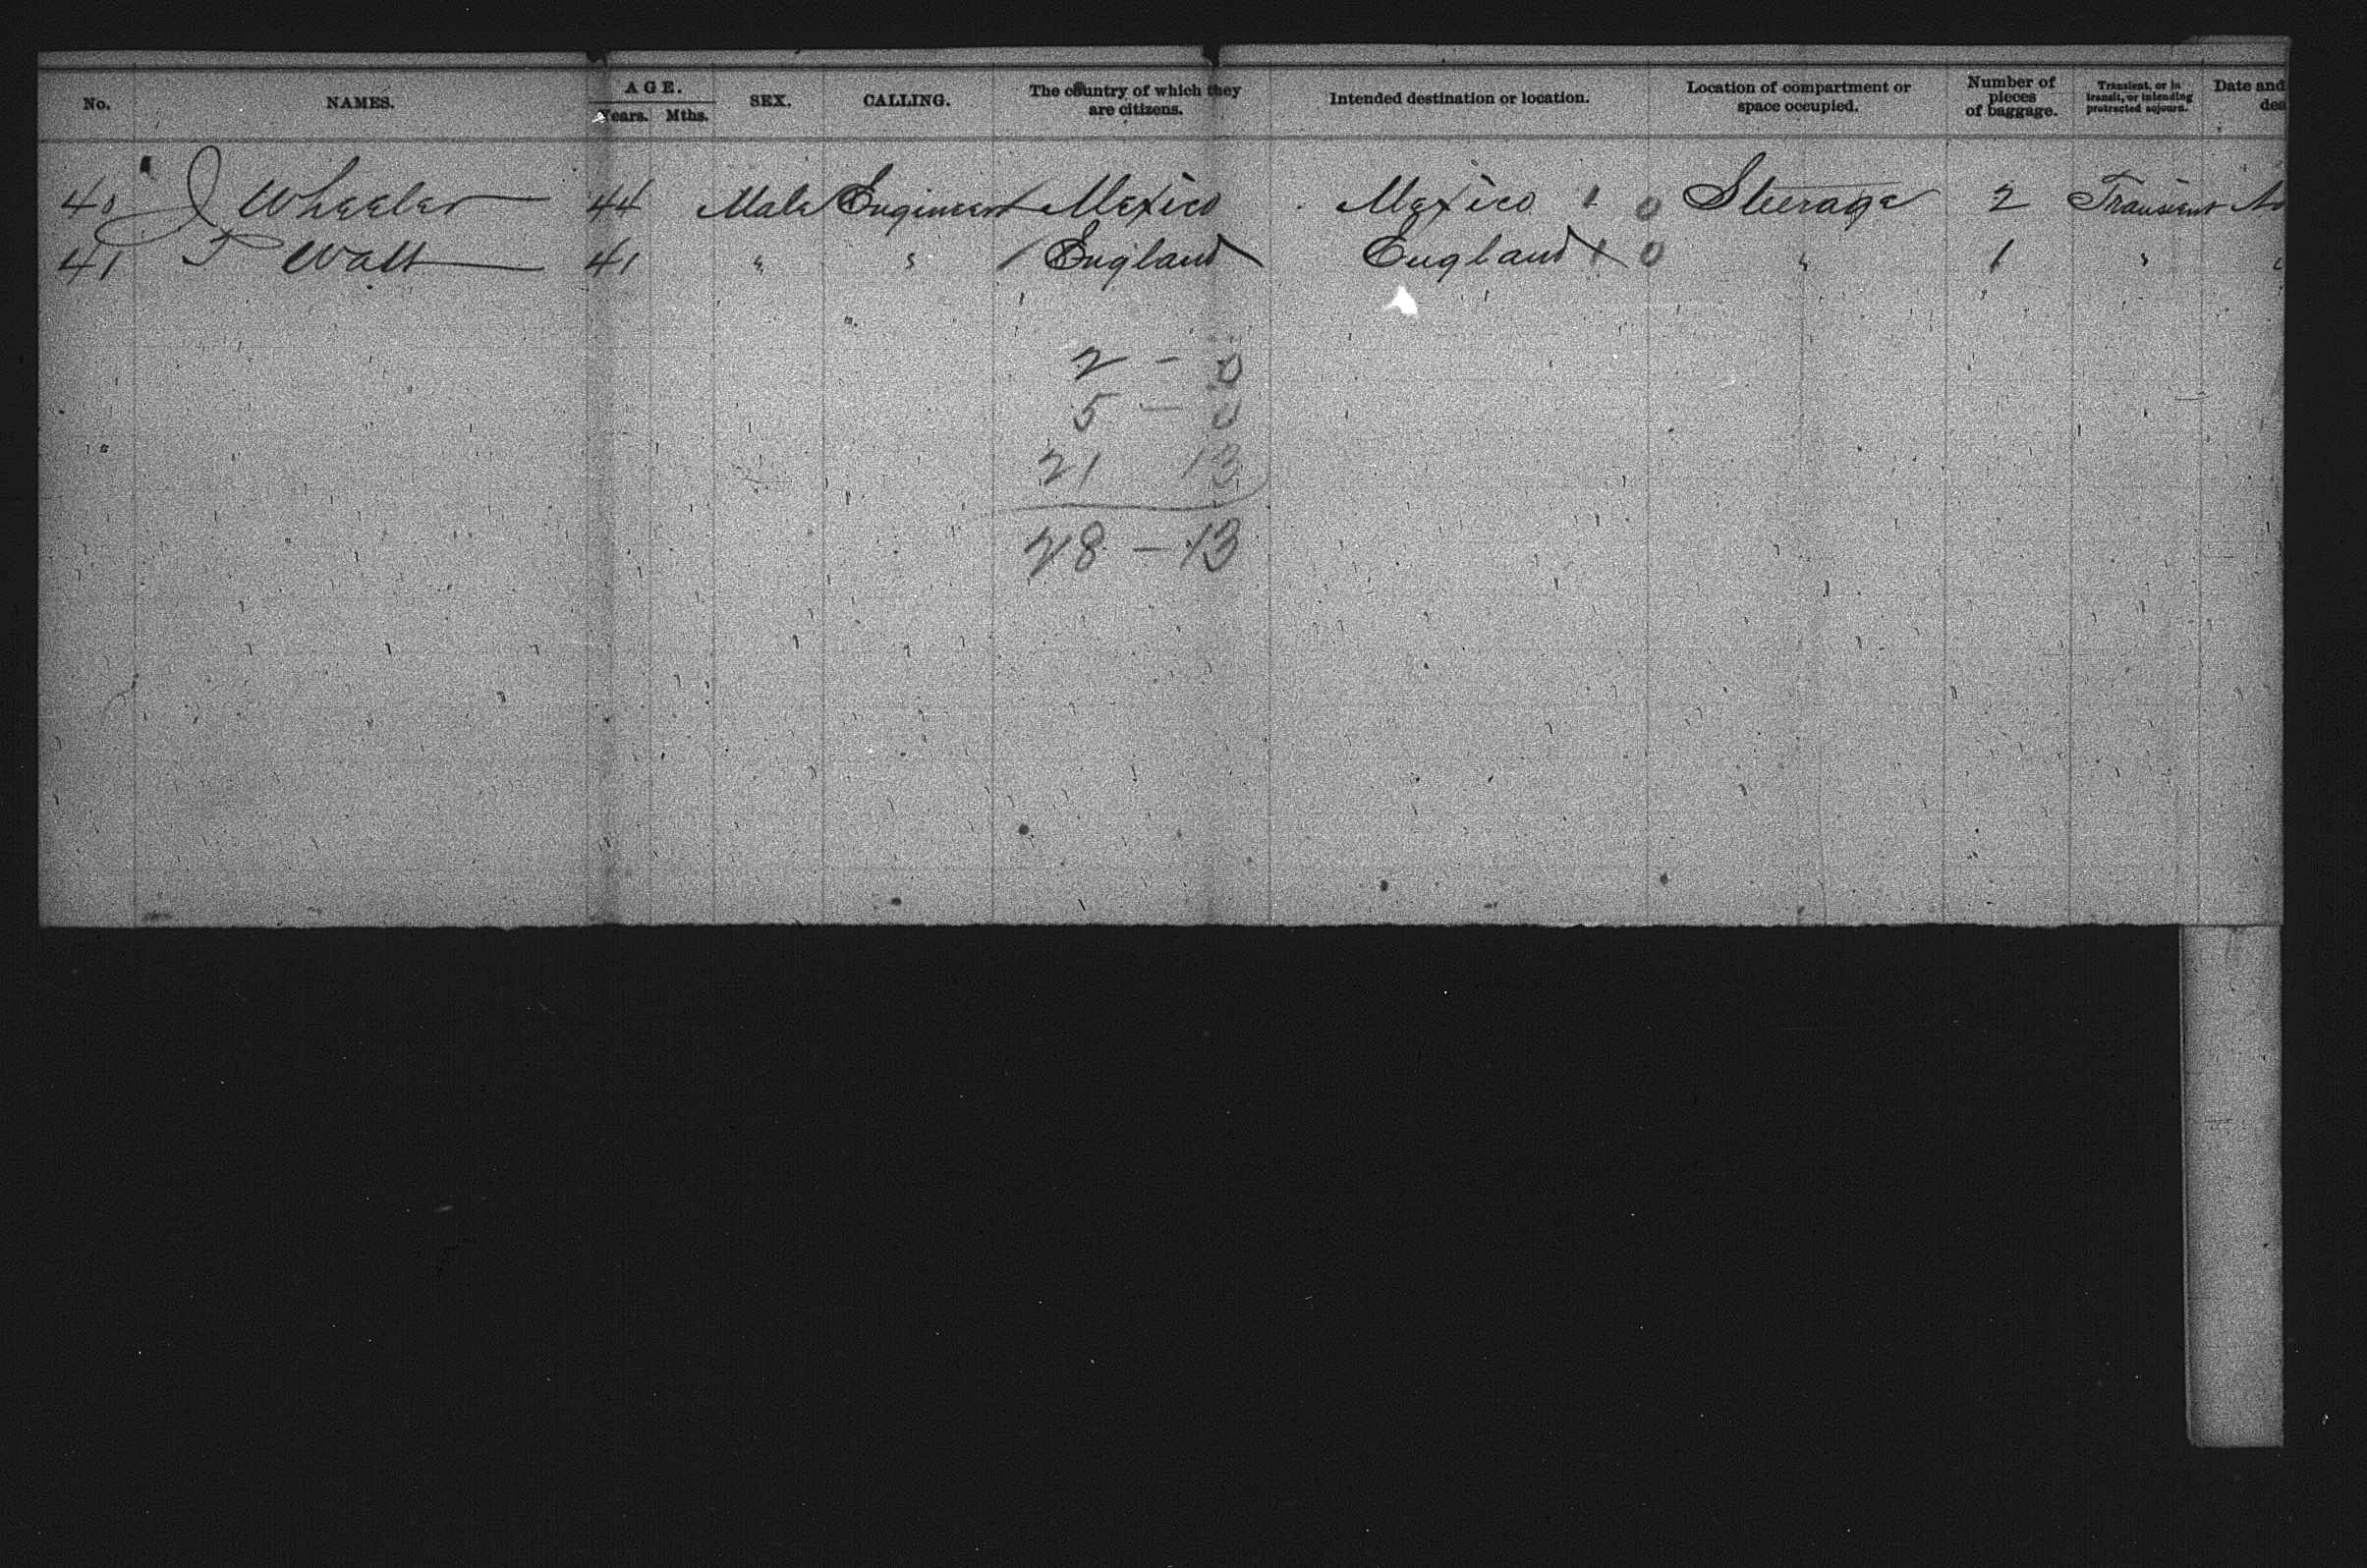 No. NAMES. AGE. Years. Mths. SEX. CALLING. The country of which they are citizens. Intended destination or location. Location of compartment or space occupied. Number of pieces of baggage. Transient, or in transit, or intending protracted sojourn. Date and
40 J Wheeler 44 Male Engineer Mexico Mexico 1 0 Steerage 2 Transient No
41 T Watt 41 " " England England 1 0 " 1 "
2 - 0
5 - 0
21 13
28 - 13